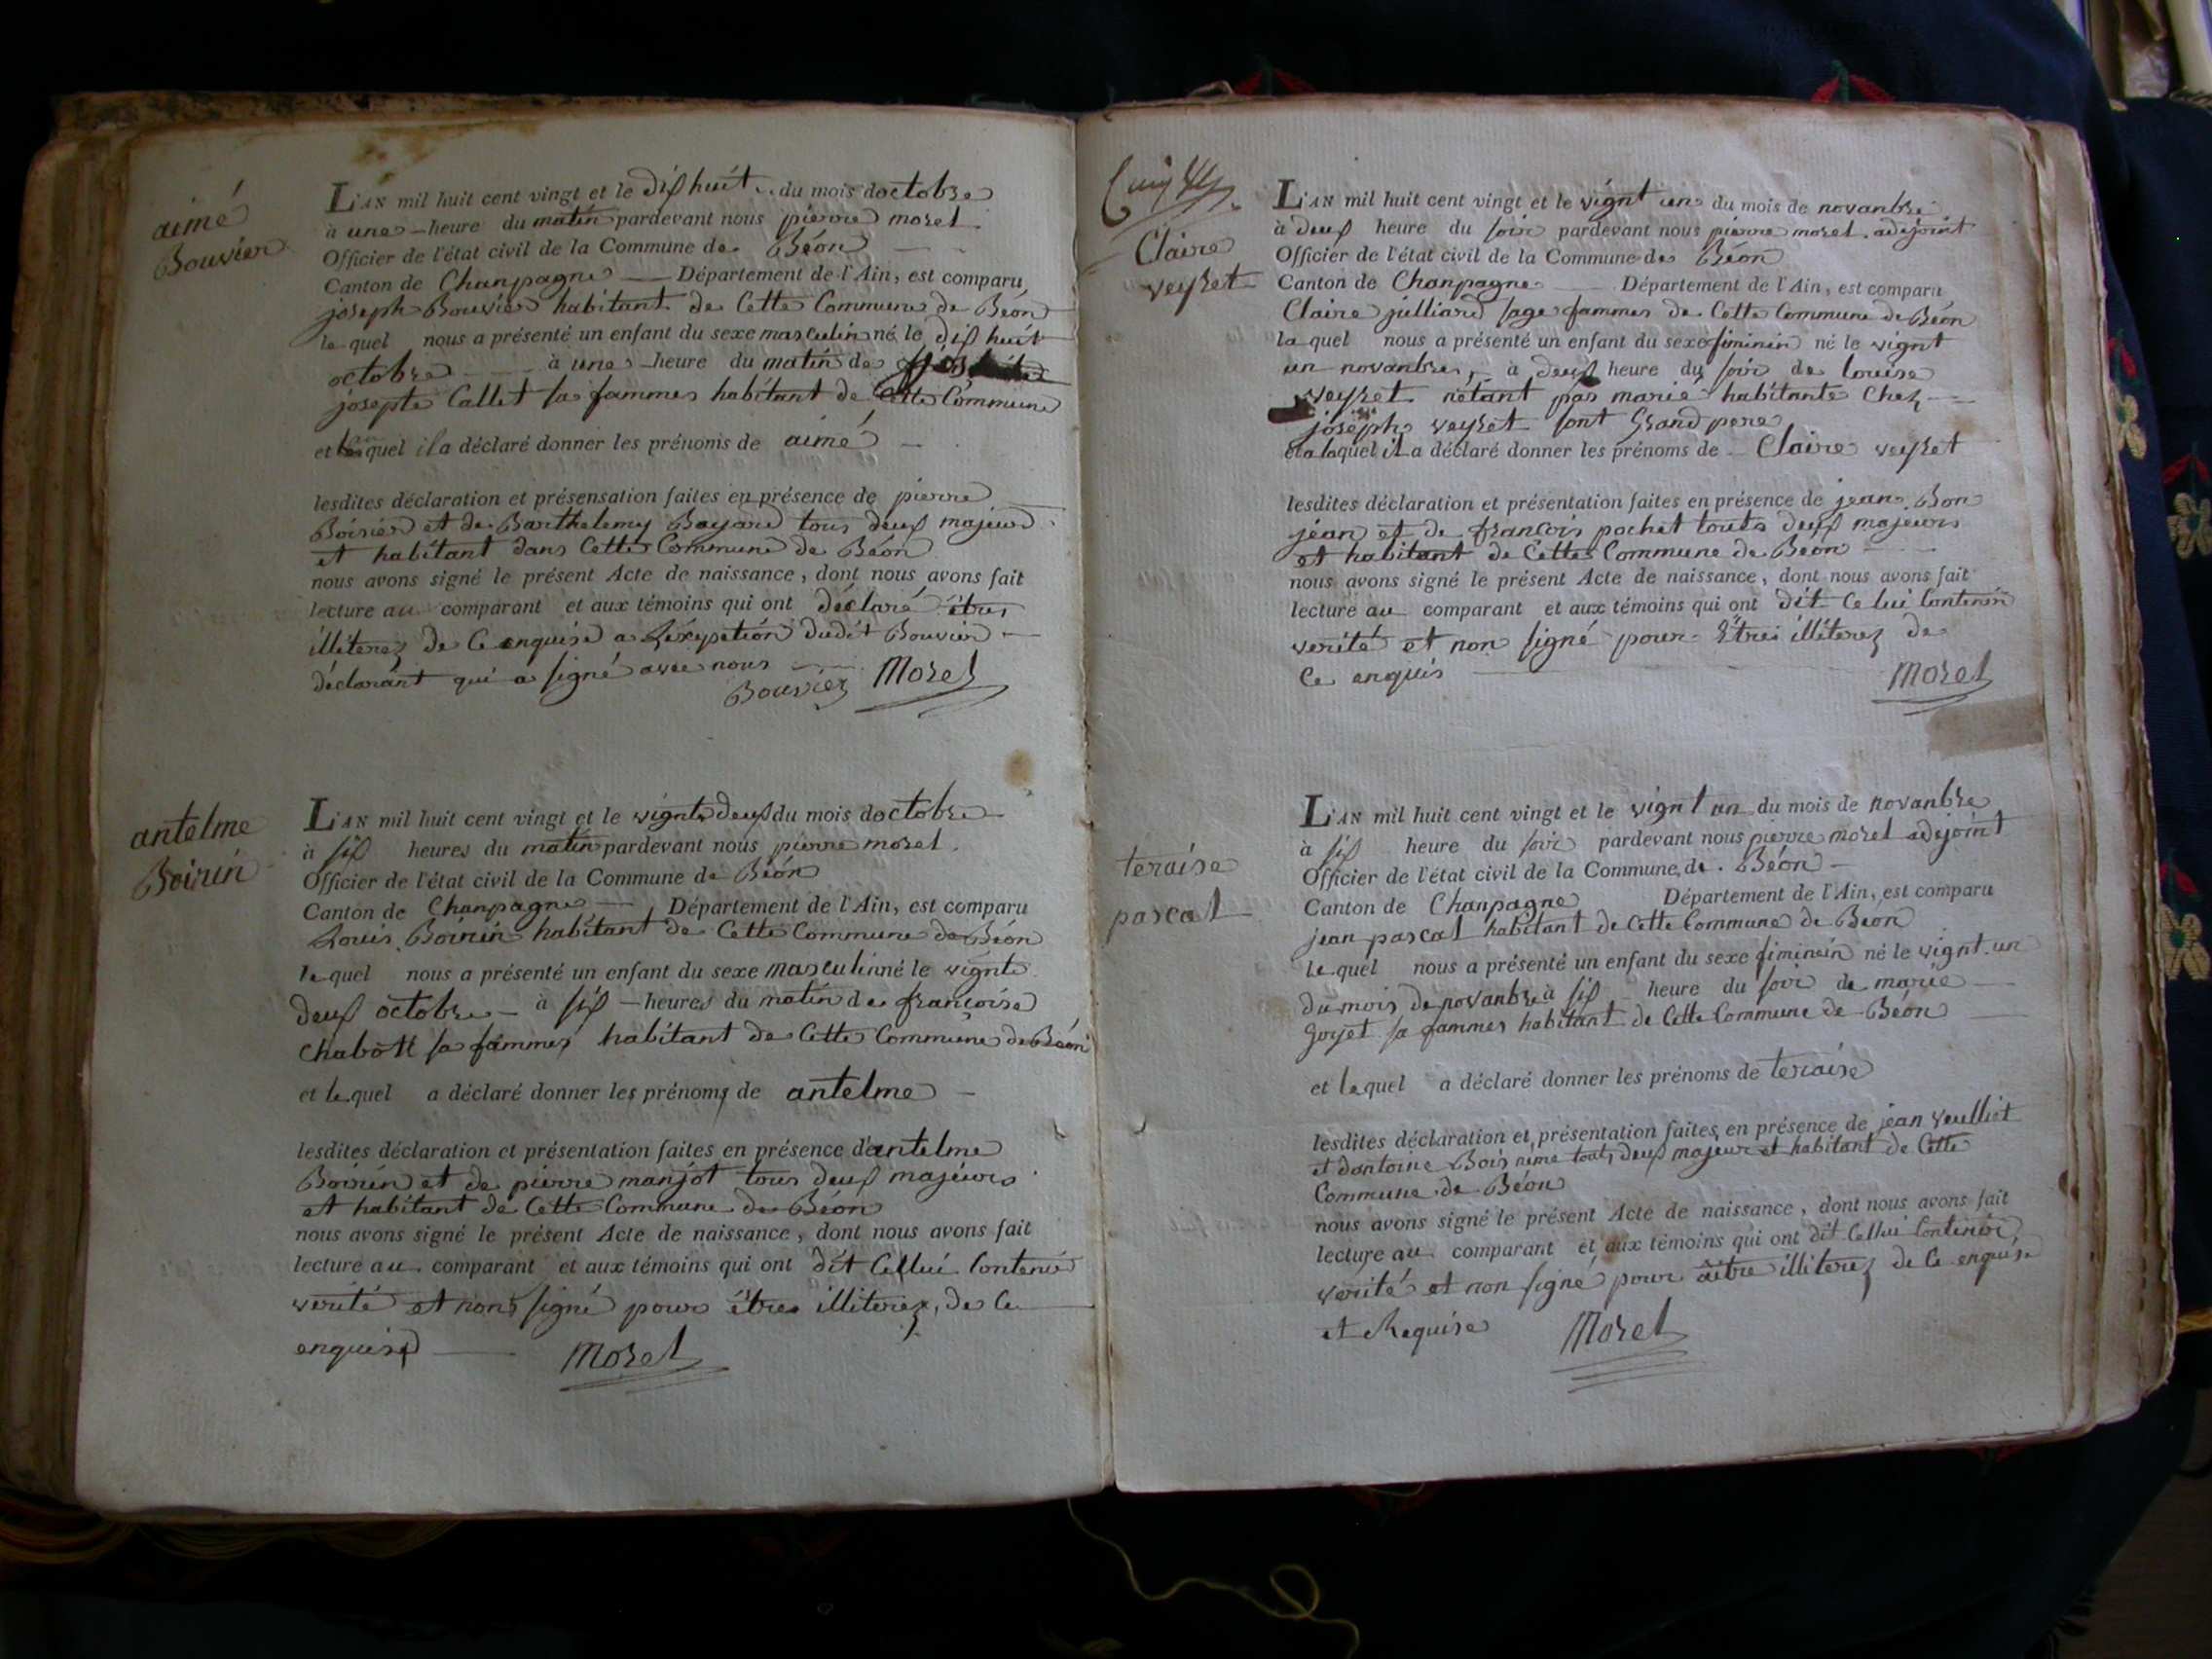 aimé
Bouvier
L'AN mil huit cent vingt et le dix huit du mois doctobre
à une heure du matin pardevant nous pierre morel
Officier de l'état civil de la Commune de Béon
Canton de Chanpagne Département de l'Ain, est comparu
joseph Bouvier habitant de Cette Commune de Béon
le quel nous a présenté un enfant du sexe masculin né le dix huit
octobre à une heure du matin de
josepte Callet sa fammes habitant de Cette Commune
et le quel il a déclaré donner les prénoms de aimé
lesdites déclaration et présensation faites en présence de pierre
Boirier et de Barthelemy Bayard tous deux majeurs
et habitant dans Cette Commune de Béon
nous avons signé le présent Acte de naissance, dont nous avons fait
lecture au comparant et aux témoins qui ont déclaré êtres
illiterez de Ce enquise a dudit Bouvier
déclarant qui a signé avec nous
Bouvier Morel
antelme
Boirin
L'AN mil huit cent vingt et le vignte deux du mois doctobre
à six heures du matin pardevant nous pierre morel
Officier de l'état civil de la Commune de Béon
Canton de Chanpagne Département de l'Ain, est comparu
Louis Boirin habitant de Cette Commune de Béon
le quel nous a présenté un enfant du sexe masculin né le vignte
deux octobre à six heures du matin de françoise
Chabott sa fammes habitant de Cette Commune de Béon
et le quel a déclaré donner les prénoms de antelme
lesdites déclaration et présentation faites en présence d'antelme
Boirin et de pierre manjot tous deux majeurs
et habitant de Cette Commune de Béon
nous avons signé le présent Acte de naissance, dont nous avons fait
lecture au comparant et aux témoins qui ont dit Cellui Contenir
verité et nons signé pour êtres illiterez, de Ce
enquise
Morel
Claire
veyret
L'AN mil huit cent vingt et le vignt un du mois de novanbre
à deux heure du soir pardevant nous pierre morel adejoint
Officier de l'état civil de la Commune de Béon
Canton de Chanpagne Département de l'Ain, est comparu
Claire julliard sage fammes de Cette Commune de Béon
la quel nous a présenté un enfant du sexe fiminin né le vignt
un novanbre, à deux heure du soir de louise
veyret nètant pas marié habitante Chez
joseph veyret sont Grand pere
et a laquel il a déclaré donner les prénoms de Claire veyret
lesdites déclaration et présentation faites en présence de jean Bon
jean et de francois pochet touts deux majeurs
et habitant de Cettes Commune de Béon
nous avons signé le présent Acte de naissance, dont nous avons fait
lecture au comparant et aux témoins qui ont dit Ce lui Contenir
verité et non signé pour Etres illiterez de
Ce enquis
Morel
teraise
pascal
L'AN mil huit cent vingt et le vignt un du mois de novanbre
à six heure du soir pardevant nous pierre morel adejoint
Officier de l'état civil de la Commune de Béon
Canton de Chanpagne Département de l'Ain, est comparu
jean pascal habitant de Cette Commune de Béon
le quel nous a présenté un enfant du sexe fiminin né le vignt un
du mois de novanbre à six heure du soir de marie
Gorjet sa fammes habitant de Cette Commune de Béon
et le quel a déclaré donner les prénoms de teraise
lesdites déclaration et présentation faites en présence de jean
et dantoine Bois touts deux majeur et habitant de Cette
Commune de Béon
nous avons signé le présent Acte de naissance, dont nous avons fait
lecture au comparant et aux témoins qui ont dit Cellui Contenir
verité et non signé pour aître illiterez de Ce enquise
et Requise
Morel